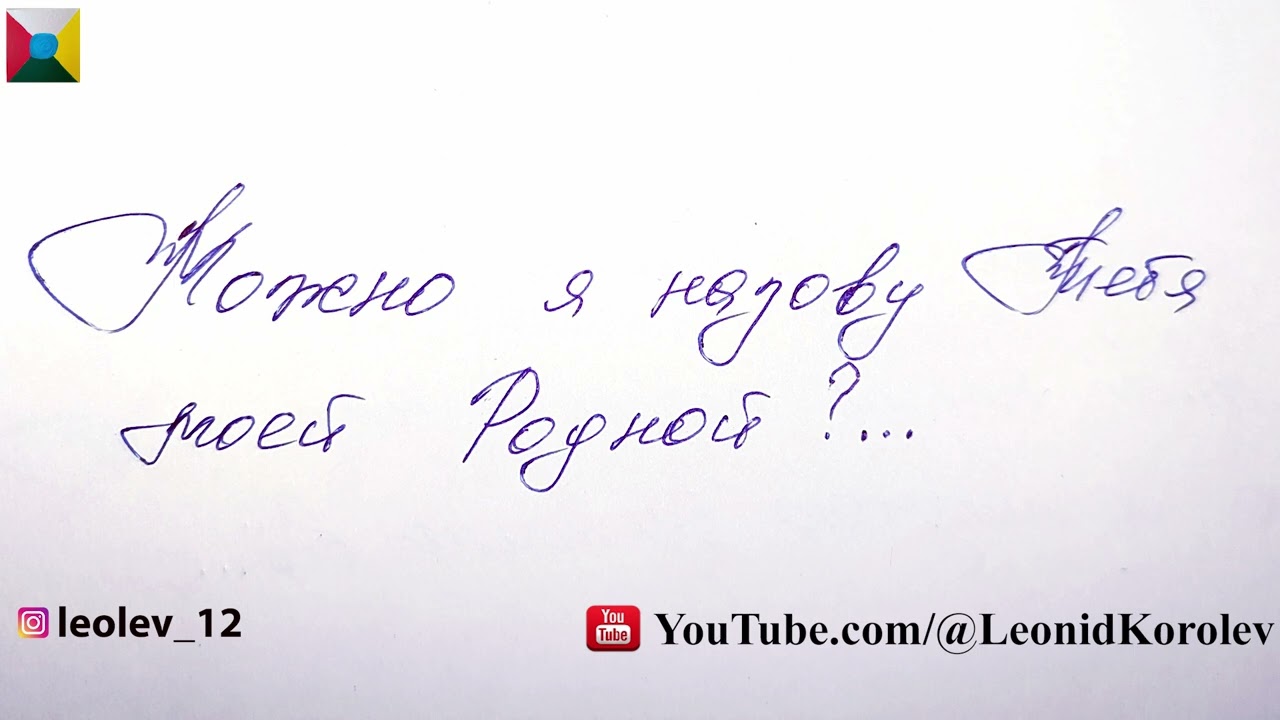 Можно я назову Тебя
моей Родной?...
leolev_12
You Tube YouTube.com/@LeonidKorolev